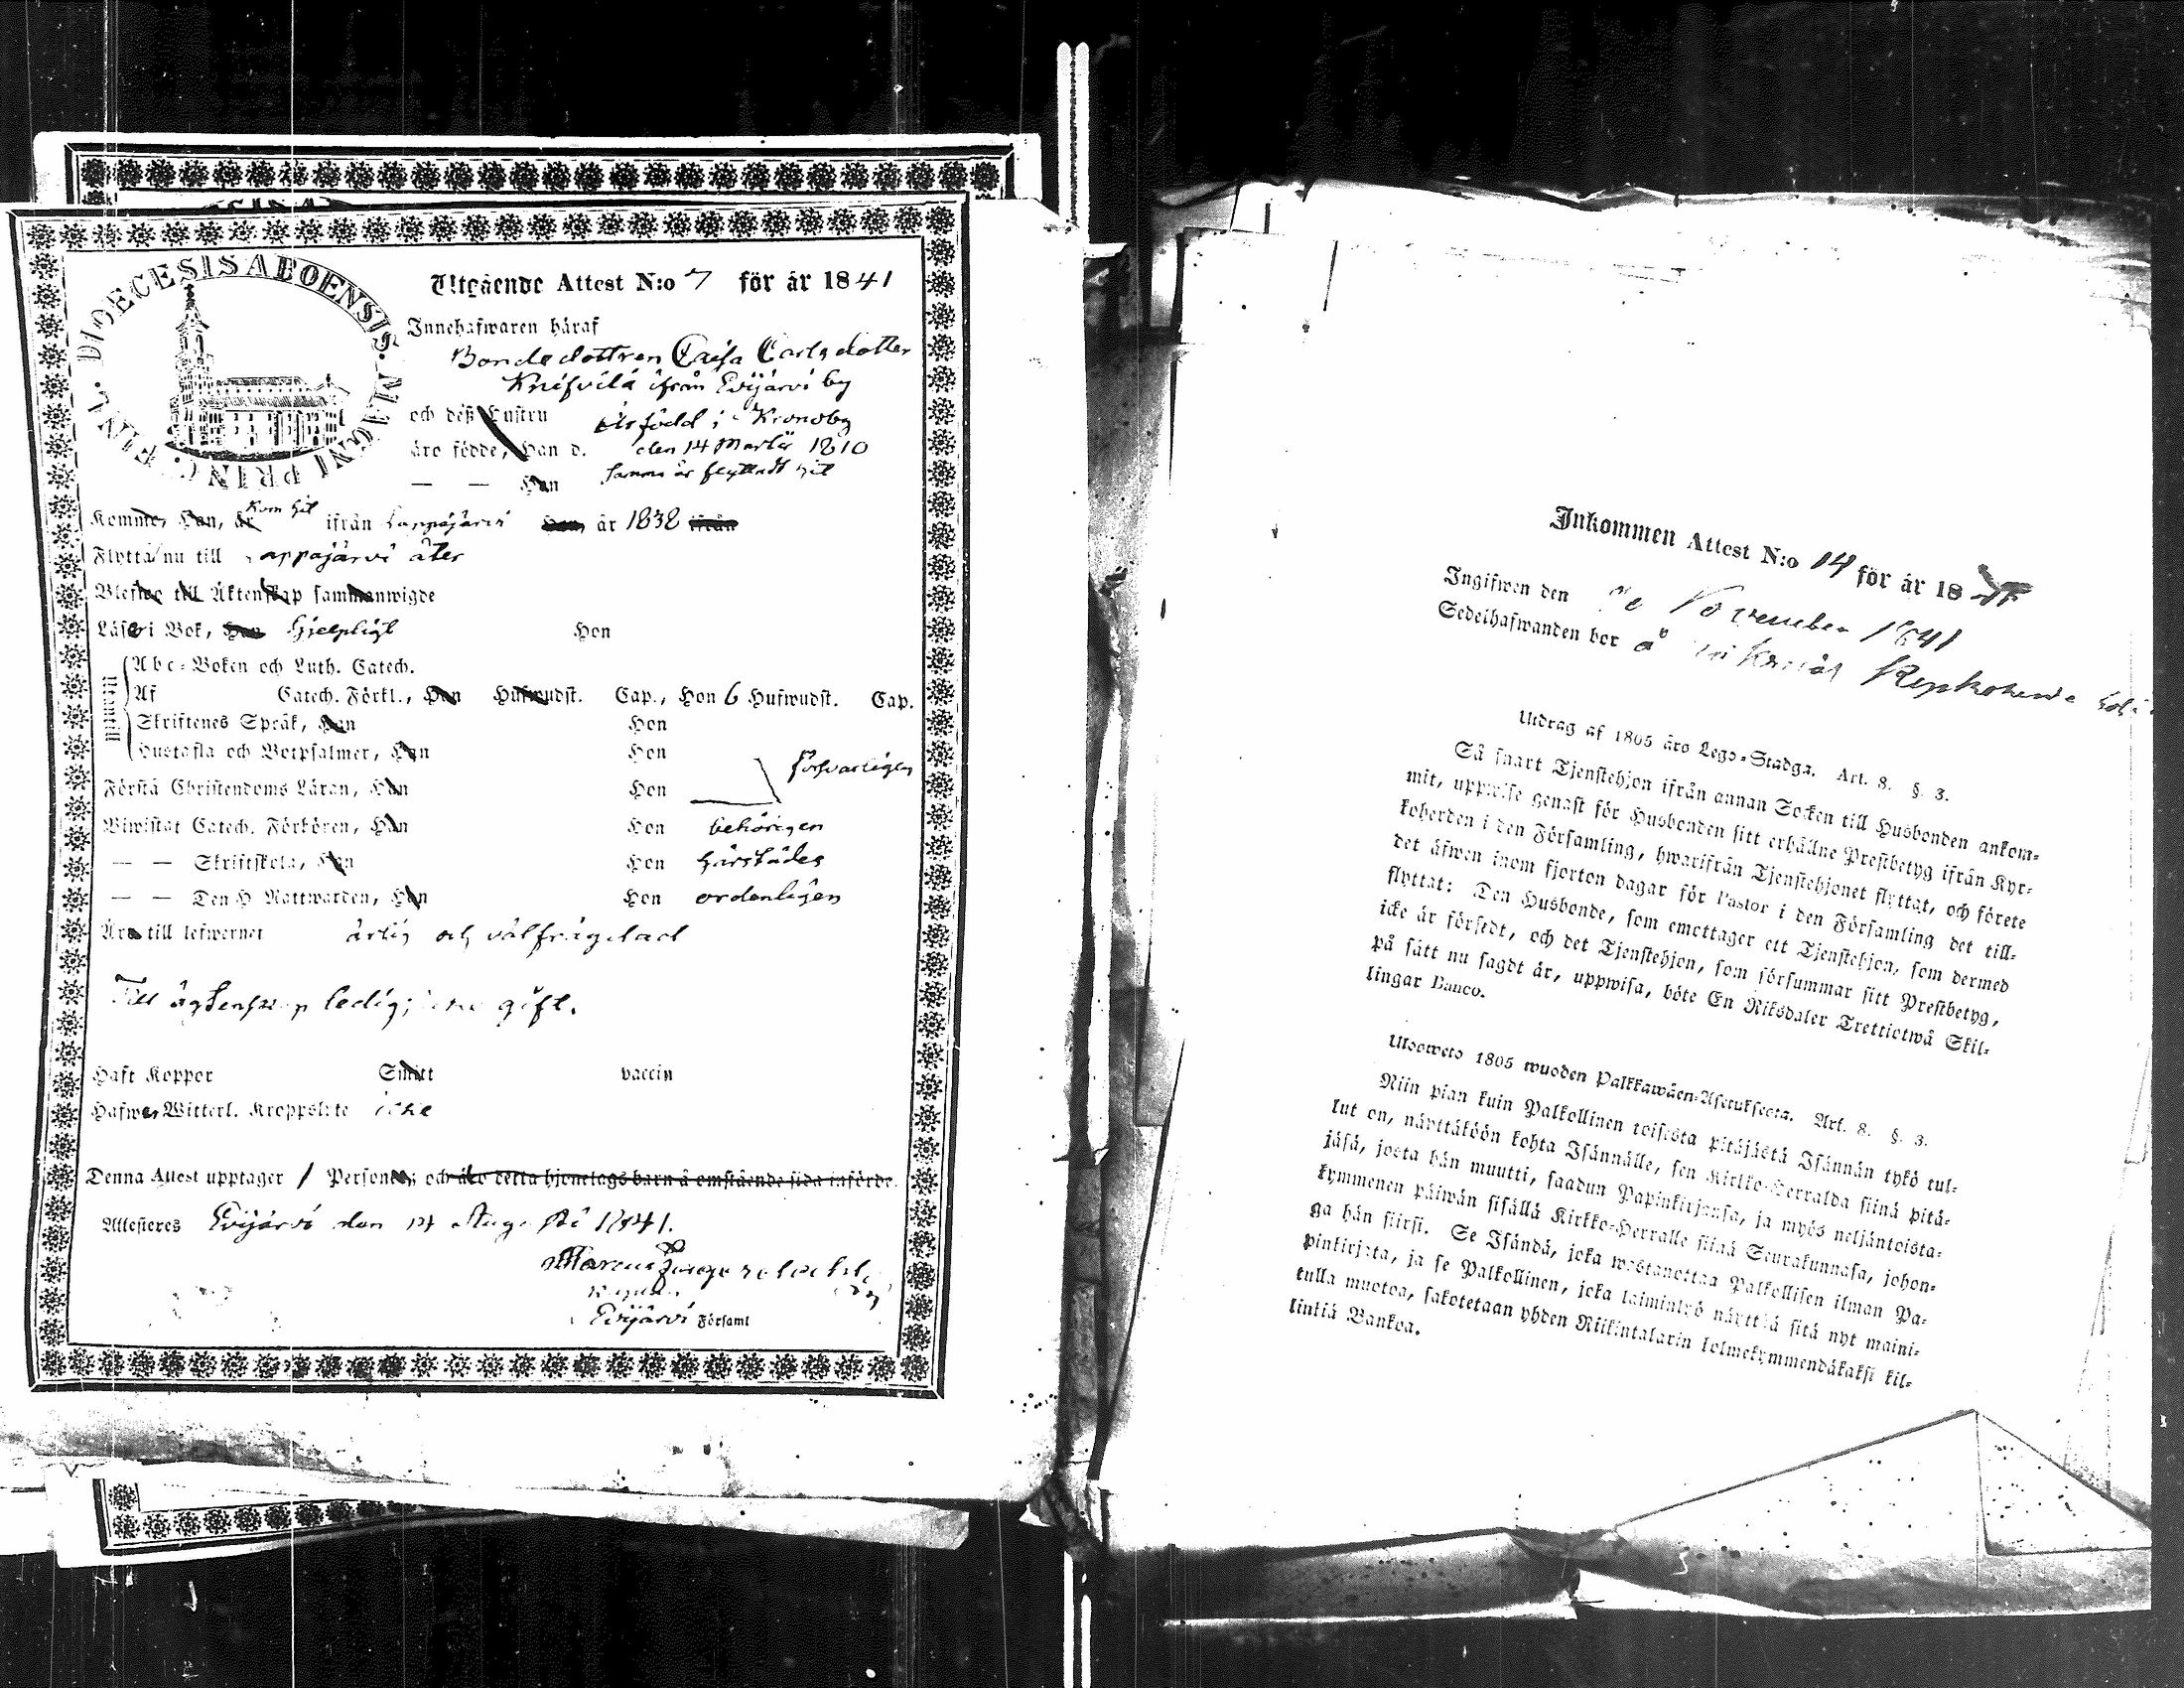 DIOECESIS ABOENSIS. MAGNI PRINC. FINL.
Utgående Attest N:o 7 för år 1841
Innehafwaren häraf
Bondedottren Caisa Carlsdotter
Knifvilä ifrån Evijärvi by
och deß Hustru är född i Kronoby
äro födde, Han d. den 14 Martii 1810
— — Hon samma år flyttadt hit
Komme, Han, år kom hit ifrån Lappajärvi Hon, år 1838 ifrån
Flytta nu till Lappajärvi åter
Blefwo till Äktenskap sammanwigde
Läser i Bok, Han hjelpligt Hon
Abc-Boken och Luth. Catech.
Af Catech. Förkl., Han Hufwudst. Cap., Hon 6 Hufwudst. Cap.
Skriftenes Språk, Han Hon
Hustafla och Botpsalmer, Han Hon
försvarligen
Förstå Christendoms Läran, Han Hon
Biwistat Catech. Förhören, Han Hon behörigen
— — Skriftskola, Han Hon härstädes
— — Den H Nattwarden, Han Hon ordenligen
Äro till lefwernet ärlig och välfrägdad
Till ägtenskap ledig; icke gift.
Haft Koppor Smitt vaccin
Hafwer Witterl. Kroppslyte icke
Denna Attest upptager 1 Personer; och äro detta hjonelags barn å omstående sida införde.
Attesteras Evijärvi den 14 Augusti 1841.
Marcus
Evijärvi Församl
Inkommen Attest N:o 14 för år 18
Ingifwen den November 1841
Sedelhafwanden bor å
Utdrag af 1805 års Lego-Stadga. Art. 8. §. 3.
Så snart Tjenstehjon ifrån annan Socken till Husbonden ankom-
mit, uppwise genast för Husbonden sitt erhållne Prestbetyg ifrån Kyr-
koherden i den Församling, hwarifrån Tjenstehjonet flyttat, och förete
det äfwen inom fjorton dagar för Pastor i den Församling det till-
flyttat: Den Husbonde, som emottager ett Tjenstehjon, som dermed
icke är försedt, och det Tjenstehjon, som försummar sitt Prestbetyg,
på sätt nu sagdt är, uppwisa, böte En Riksdaler Trettiotwå Skil-
lingar Banco.
Ulosweto 1805 wuoden Palkkawäen-Asetuksesta. Art. 8. §. 3.
Niin pian kuin Palkollinen toisesta pitäjästä Isännän tykö tul-
lut on, näyttäköön kohta Isännälle, sen Kirkko-Herralda siinä pitä-
jäsä, josta hän muutti, saadun Papinkirjansa, ja myös neljäntoista-
kymmenen päiwän sisällä Kirkko-Herralle siinä Seurakunnasa, johon-
ga hän siirsi. Se Isändä, joka wastanottaa Palkollisen ilman Pa-
pinkirjata, ja se Palkollinen, joka laiminlyö näyttää sitä nyt maini-
tulla muotoa, sakotetaan yhden Riikintalarin kolmekymmendäkaksi kil-
linkiä Bankoa.